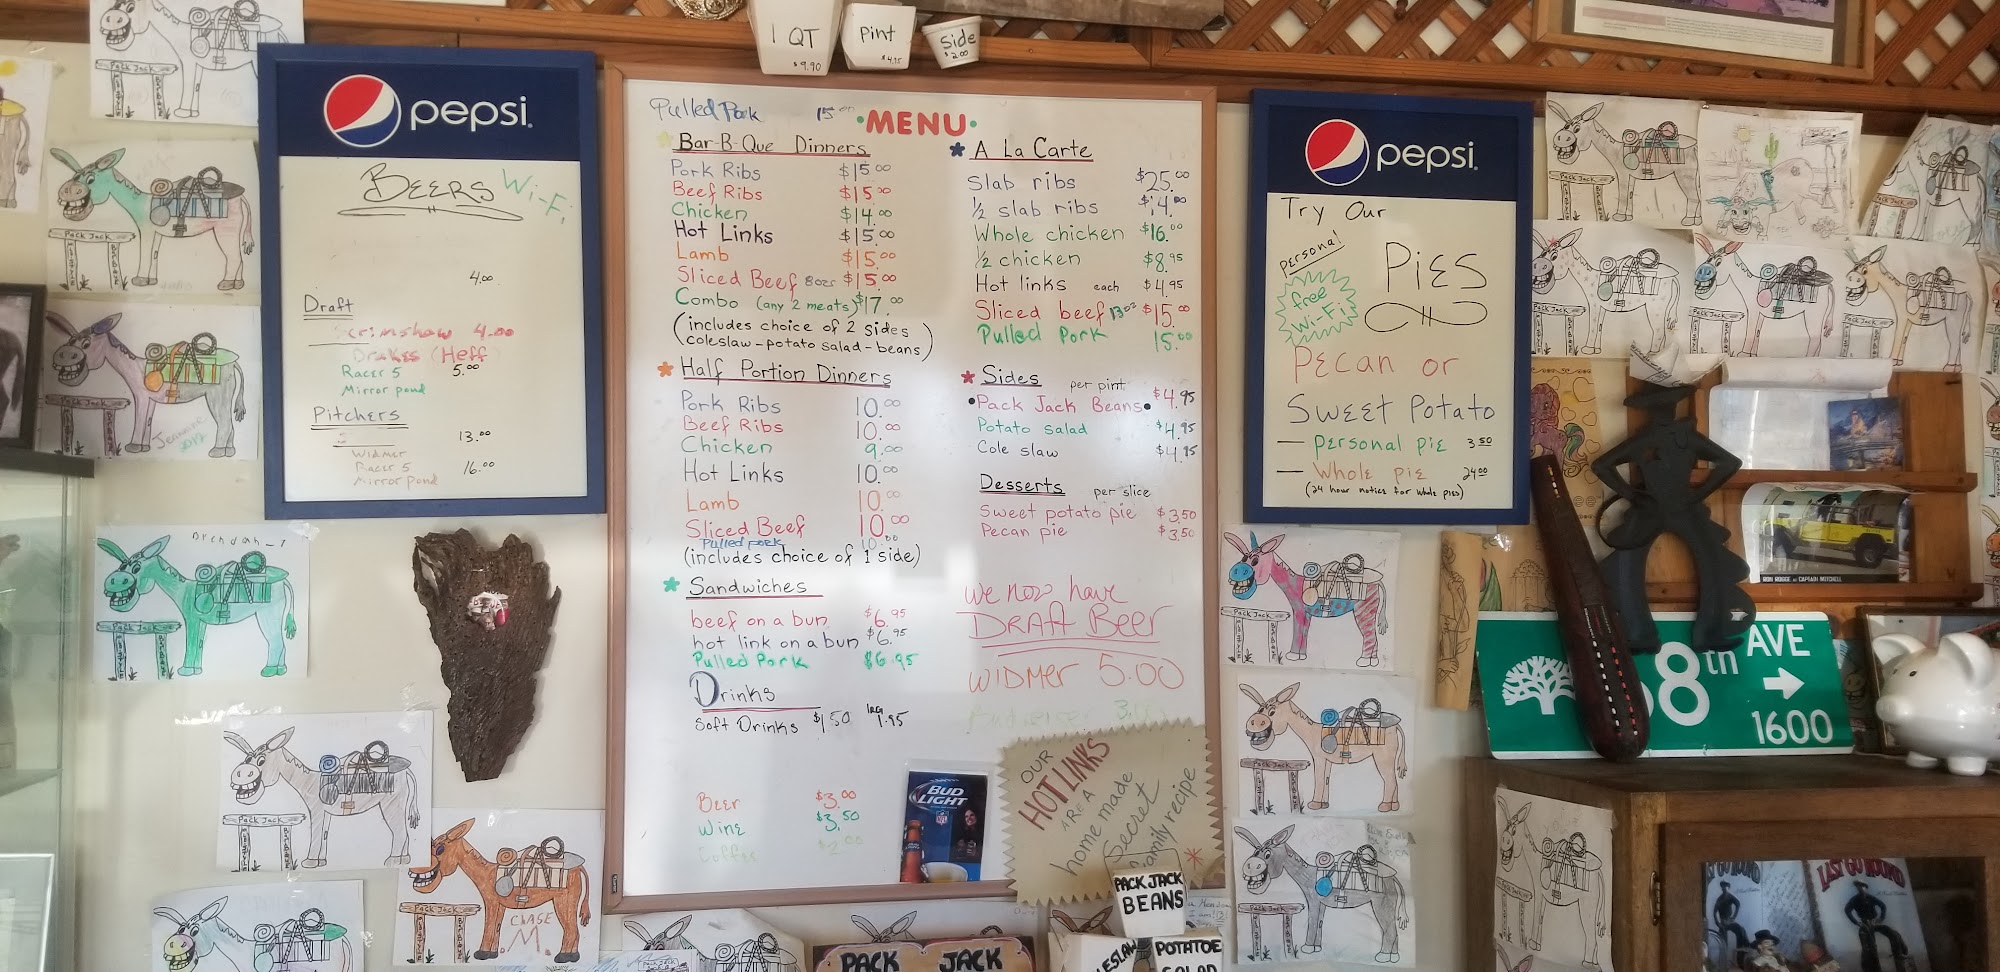 1 QT
$9.90
Pint
$4.95
Side
$2.00
pepsi
BEERS
Wi-Fi
4.00
Draft
Scrimshaw 4.00
Drakes (Heff
Racer 5 5.00
Mirror pond
Pitchers
13.00
Widmer
Racer 5 16.00
Mirror pond
Pulled Pork 15
MENU
Bar-B-Que Dinners
Pork Ribs $15.00
Beef Ribs $15.00
Chicken $14.00
Hot Links $15.00
Lamb $15.00
Sliced Beef 8ozs $15.00
Combo (any 2 meats) $17.00
(includes choice of 2 sides
coleslaw-potato salad-beans)
Half Portion Dinners
Pork Ribs 10.00
Beef Ribs 10.00
Chicken 9.00
Hot Links 10.00
Lamb 10.00
Sliced Beef 10.00
Pulled pork 10.00
(includes choice of 1 side)
Sandwiches
beef on a bun $6.95
hot link on a bun $6.95
Pulled Pork $6.95
Drinks
Soft Drinks $1.50 lrg 1.95
Beer $3.00
Wine $3.50
Coffee $2.00
A La Carte
Slab ribs $25.00
1/2 slab ribs $14.00
Whole chicken $16.00
1/2 chicken $8.95
Hot links each $4.95
Sliced beef 13ozs $15.00
Pulled Pork 15.00
Sides per pint
Pack Jack Beans $4.95
Potato salad $4.95
Cole slaw $4.95
Desserts per slice
Sweet potato pie $3.50
Pecan pie $3.50
We now have
DRAFT Beer
WIDMER 5.00
Budweiser
BUD
LIGHT
OUR
HOT LINKS
ARE A
home made
Secret
family recipe
PACK JACK
BEANS
POTATOE
SALAD
PACK JACK
pepsi
Try Our
personal
PIES
free
Wi-Fi
Pecan or
Sweet Potato
— personal pie 3.50
— Whole pie 24.00
(24 hour notice for whole pies)
68th AVE
1600
RON ROGGE as CAPTAIN MITCHELL
LAST GO ROUND
Pack Jack
Brendan
Jeannine
2012
CHASE
M.